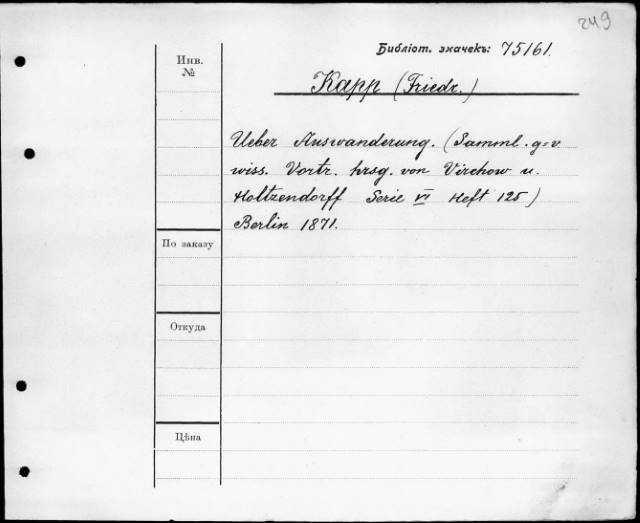 249
Библіот. значекъ: 75161.
Инв.
№
Kapp (Friedr.)
Ueber Auswanderung. (Samml. g.v
wiss. Vortr. hrsg. von Virchow u.
Holtzendorff Serie VI Heft 125)
Berlin 1871.
По заказу
Откуда
Цѣна